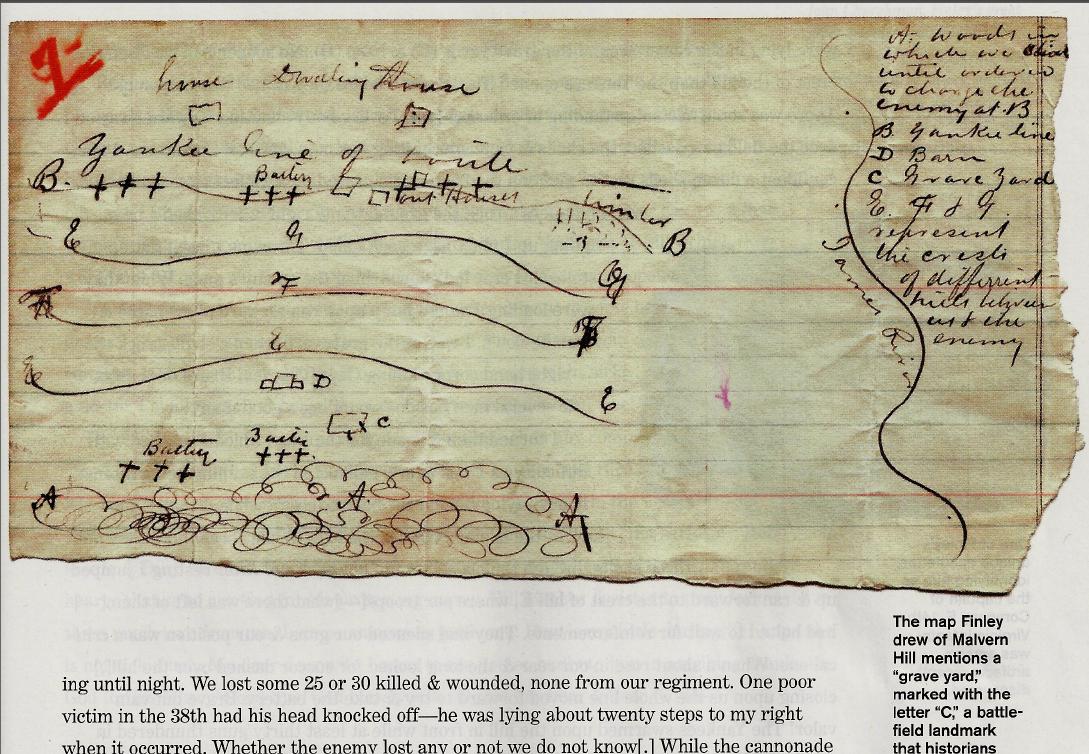 2
house Dwelling House
Yankee line of battle
B. Battery
out Houses
timber
B
E G
G
F
F
F
E
E
E
D
C
Battery Battery
A A. A
James River
A- Woods in
which we
until ordered
to charge the
enemy at B
B Yankee line
D Barn
C Grave Yard
E. F & G
represent
the crests
of different
hills between
us & the
enemy
The map Finley
drew of Malvern
Hill mentions a
“grave yard,”
marked with the
letter “C,” a battle-
field landmark
that historians
ing until night. We lost some 25 or 30 killed & wounded, none from our regiment. One poor
victim in the 38th had his head knocked off—he was lying about twenty steps to my right
when it occurred. Whether the enemy lost any or not we do not know[.] While the cannonade